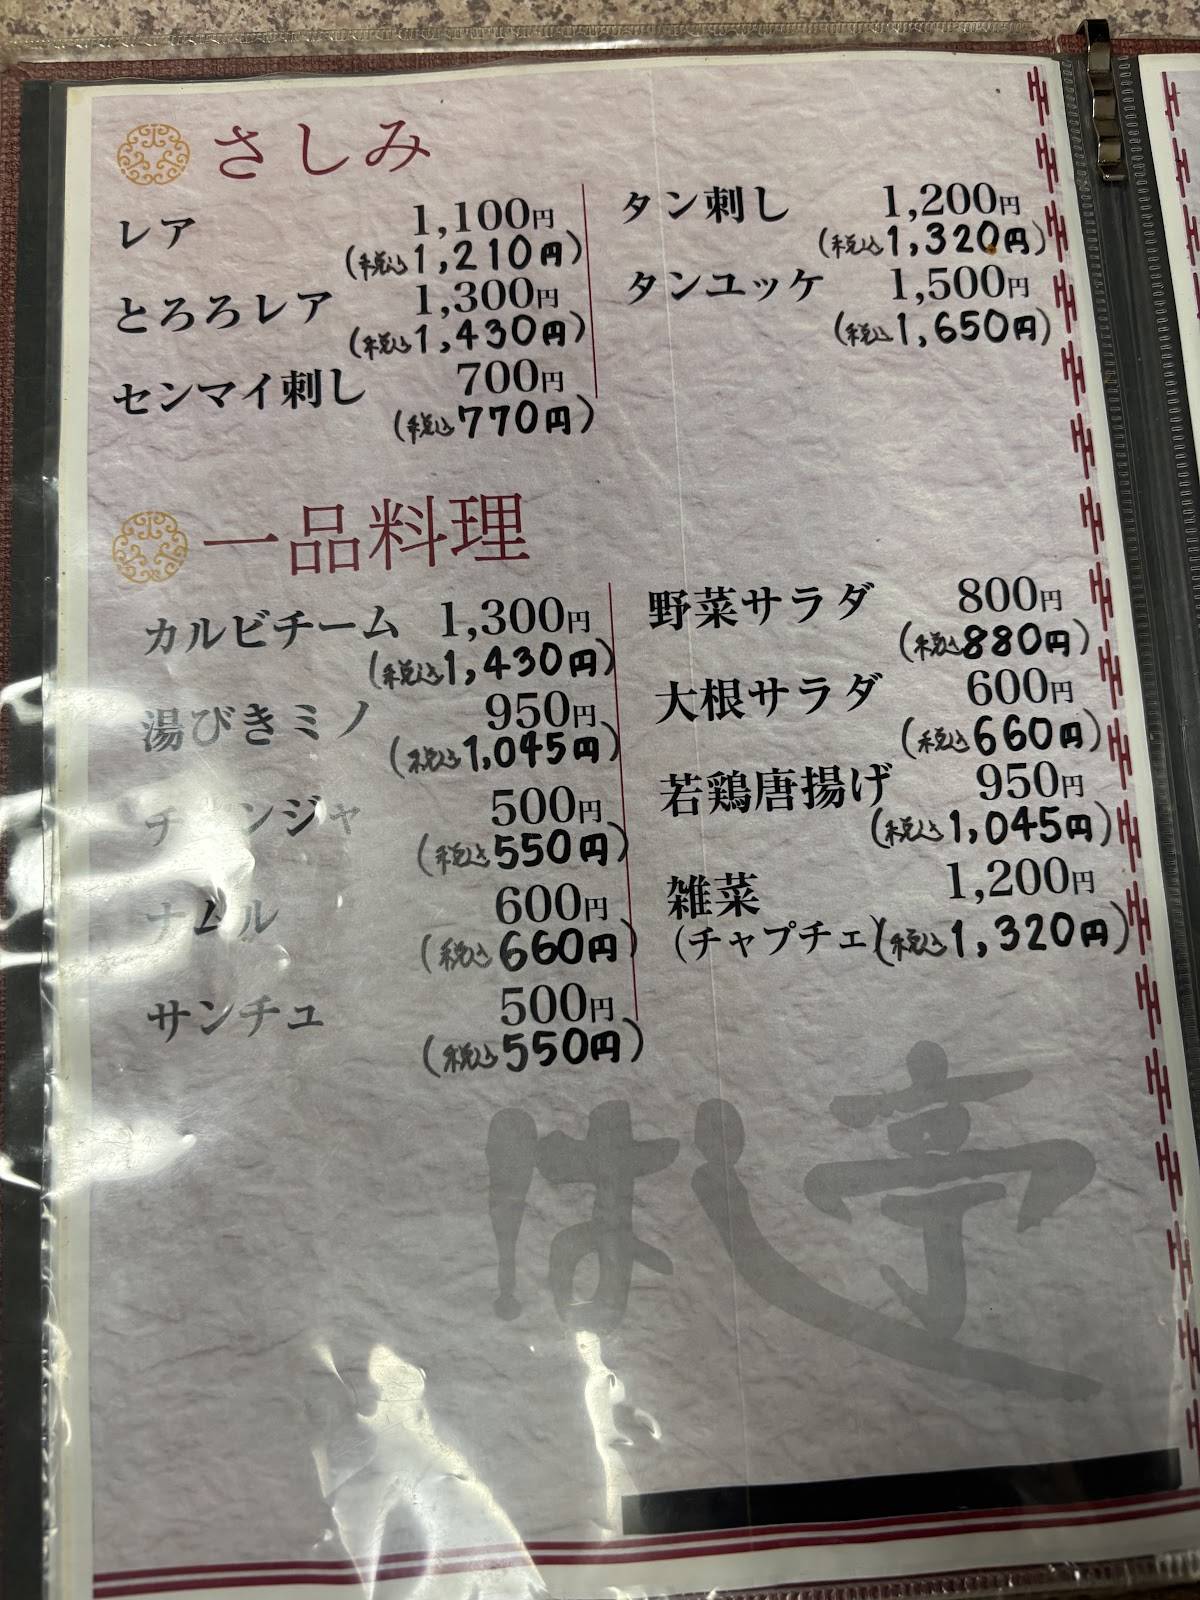 さしみ
レア 1,100円
(税込1,210円)
とろろレア 1,300円
(税込1,430円)
センマイ刺し 700円
(税込770円)
タン刺し 1,200円
(税込1,320円)
タンユッケ 1,500円
(税込1,650円)
一品料理
カルビチーム 1,300円
(税込1,430円)
湯びきミノ 950円
(税込1,045円)
チャンジャ 500円
(税込550円)
ナムル 600円
(税込660円)
サンチュ 500円
(税込550円)
野菜サラダ 800円
(税込880円)
大根サラダ 600円
(税込660円)
若鶏唐揚げ 950円
(税込1,045円)
雑菜 1,200円
(チャプチェ)(税込1,320円)
はし亭